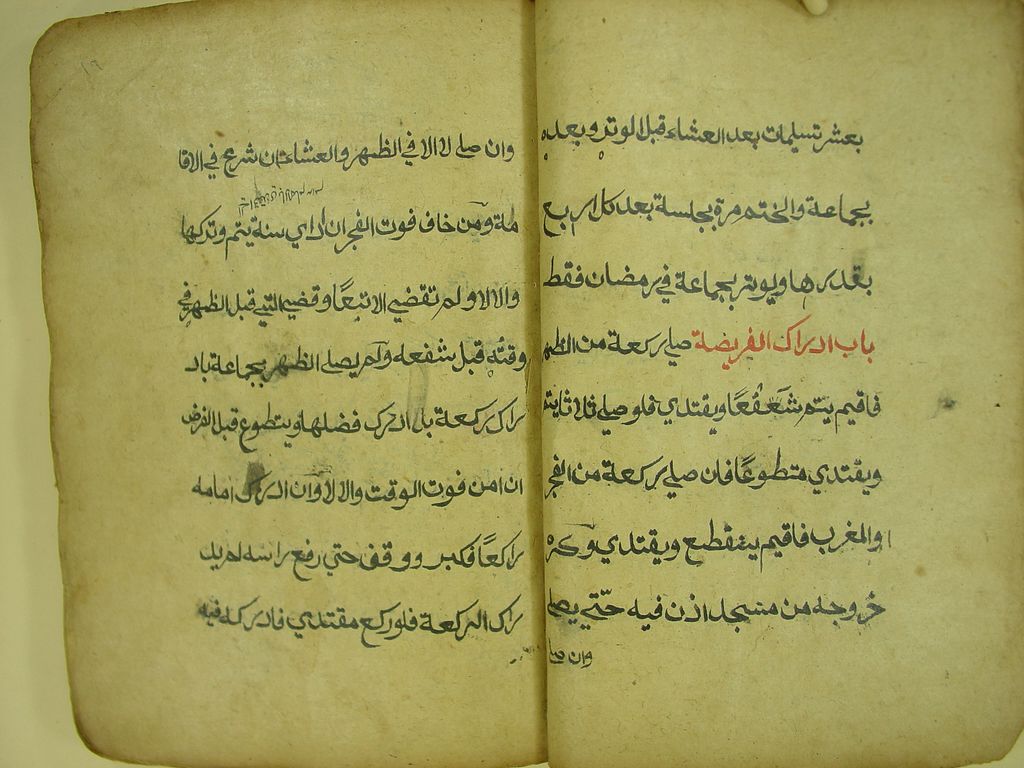 بعشر تسليمات بعد العشاء قبل الوتر وبعده
بجماعة والختم مرة بجلسة بعد كل اربع
بقدرها ويوتر بجماعة في رمضان فقط
باب ادراك الفريضة صلي ركعة من الظهر
فاقيم يتم شفعًا ويقتدي فلو صلي ثلاثا يتم
ويقتدي متطوعًا فان صلي ركعة من الفجر
او المغرب فاقيم يقطع ويقتدي وكره
خروجه من مسجد اذن فيه حتي يصلي
وان صلي
وان صلي لا الا في الظهر والعشاء ان شرع في الاقا
مة ومن خاف فوت الفجر ان ادي سنة يتم وتركها
والا لا ولم تقضي الا تبعًا وقضي التي قبل الظهر في
وقته قبل شفعه ولم يصلي الظهر بجماعة باد
راك ركعة بل ادرك فضلها ويتطوع قبل الفرض
ان امن فوت الوقت والا لا وان ادرك امامه
راكعًا فكبر ووقف حتي رفع راسه لم يد
رك الركعة فلو ركع مقتدي فادركه فيه